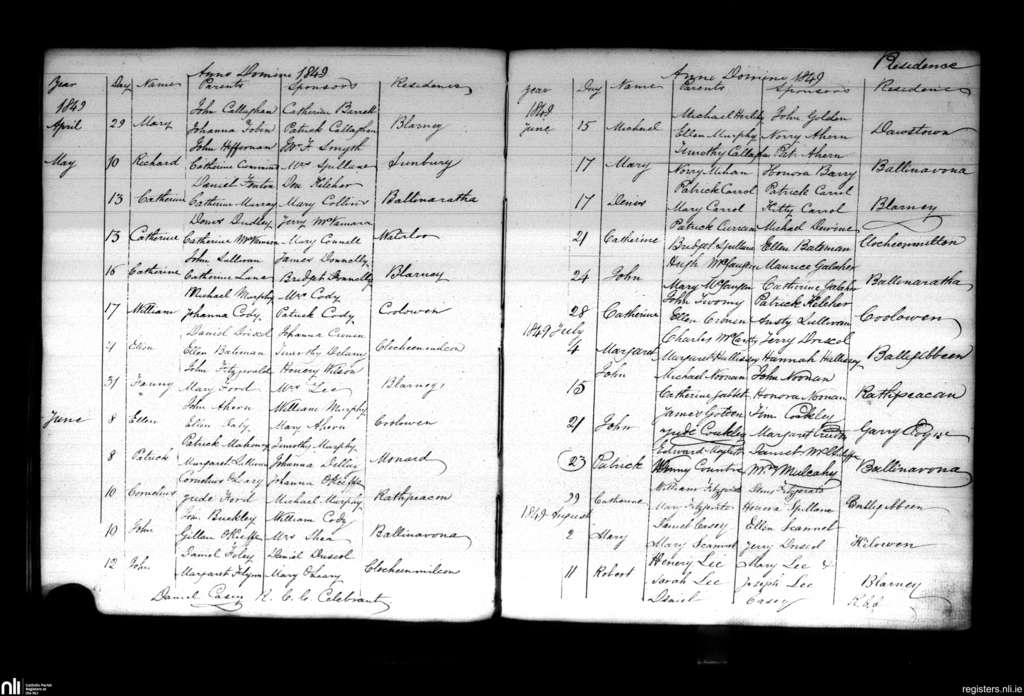 Anno Domini 1849
Year Day Name Parents Sponsors Residence
1849 John Callaghan Catherine Barrett
April 29 Mary Johanna Tobin Patrick Callaghan Blarney
John Heffernan Wm F. Smyth
May 10 Richard Catherine Mrs Spillane Sunbury
Daniel Fenton Don Keleher
13 Catherine Catherine Murray Mary Collins Ballinaratha
Denis Dudley Jerry McNamara
13 Catherine Catherine Mary Connell Waterloo
John Sullivan James Donnelly
16 Catherine Catherine Lane Bridget Donnelly Blarney
Michael Murphy Mrs Cody
17 William Johanna Cody Patrick Cody Coolowen
Daniel Driscol Johanna Cronin
4 Eliza Ellen Bateman Timothy Delany
John Fitzgerald Henery Wilson
31 Fanny Mary Ford Mrs Lee Blarney
John Ahern William Murphy
June 8 Ellen Ellen Mary Ahern Coolowen
Patrick Mahoney Timothy Murphy
8 Patrick Margaret Johanna Monard
Cornelius OLeary Johanna OKeeffe
10 Cornelius Jude Ford Michael Murphy Rathpeacon
Tim Buckley William Cody
10 John Gillen OKeeffe Mrs Shea Ballinavona
Daniel Foley Daniel Driscol
12 John Margaret Flynn Mary OLeary
Daniel Casey R. C. C. Celebrant
Residence
Anno Domini 1849
year Day Name Parents Sponsors Residence
1849 Michael Herlihy John Golden
June 15 Michael Ellen Murphy Norry Ahern Dawstown
Timothy Callaghan Pat Ahern
17 Mary Norry Mehan Honora Barry Ballinavona
Patrick Carrol Patrick Carrol
17 Denis Mary Carrol Kitty Carrol Blarney
Patrick Curran Michael Devine
21 Catherine Bridget Spillane Ellen Bateman
Hugh Maurice Galaher
24 John Mary Catherine Galaher Ballinaratha
John Twomy Patrick Keleher
28 Catherine Ellen Cronin Austy Sullivan Coolowen
1849 July Charles McCarty Jerry Driscol
4 Margaret Margaret Hallissey Hannah Hallissey Ballygibbeen
John Michael Noonan John Noonan
15 Catherine Honora Noonan Rathpeacon
James Tim Coakley
21 John Jude Coakley Margaret Garry
Edward Daniel
23 Patrick Wm Mulcahy Ballinavona
William Fitzgerald Denis Fitzgerald
29 Catherine Mary Fitzgerald Honora Spillane Ballygibbeen
1849 August Daniel Casey Ellen Scannel
2 Mary Mary Scannel Jerry Driscol Kilowen
Henery Lee Mary Lee &
11 Robert Sarah Lee Joseph Lee Blarney
Daniel Casey R.C.C.
nli
Catholic Parish
Registers at
the NLI
registers.nli.ie